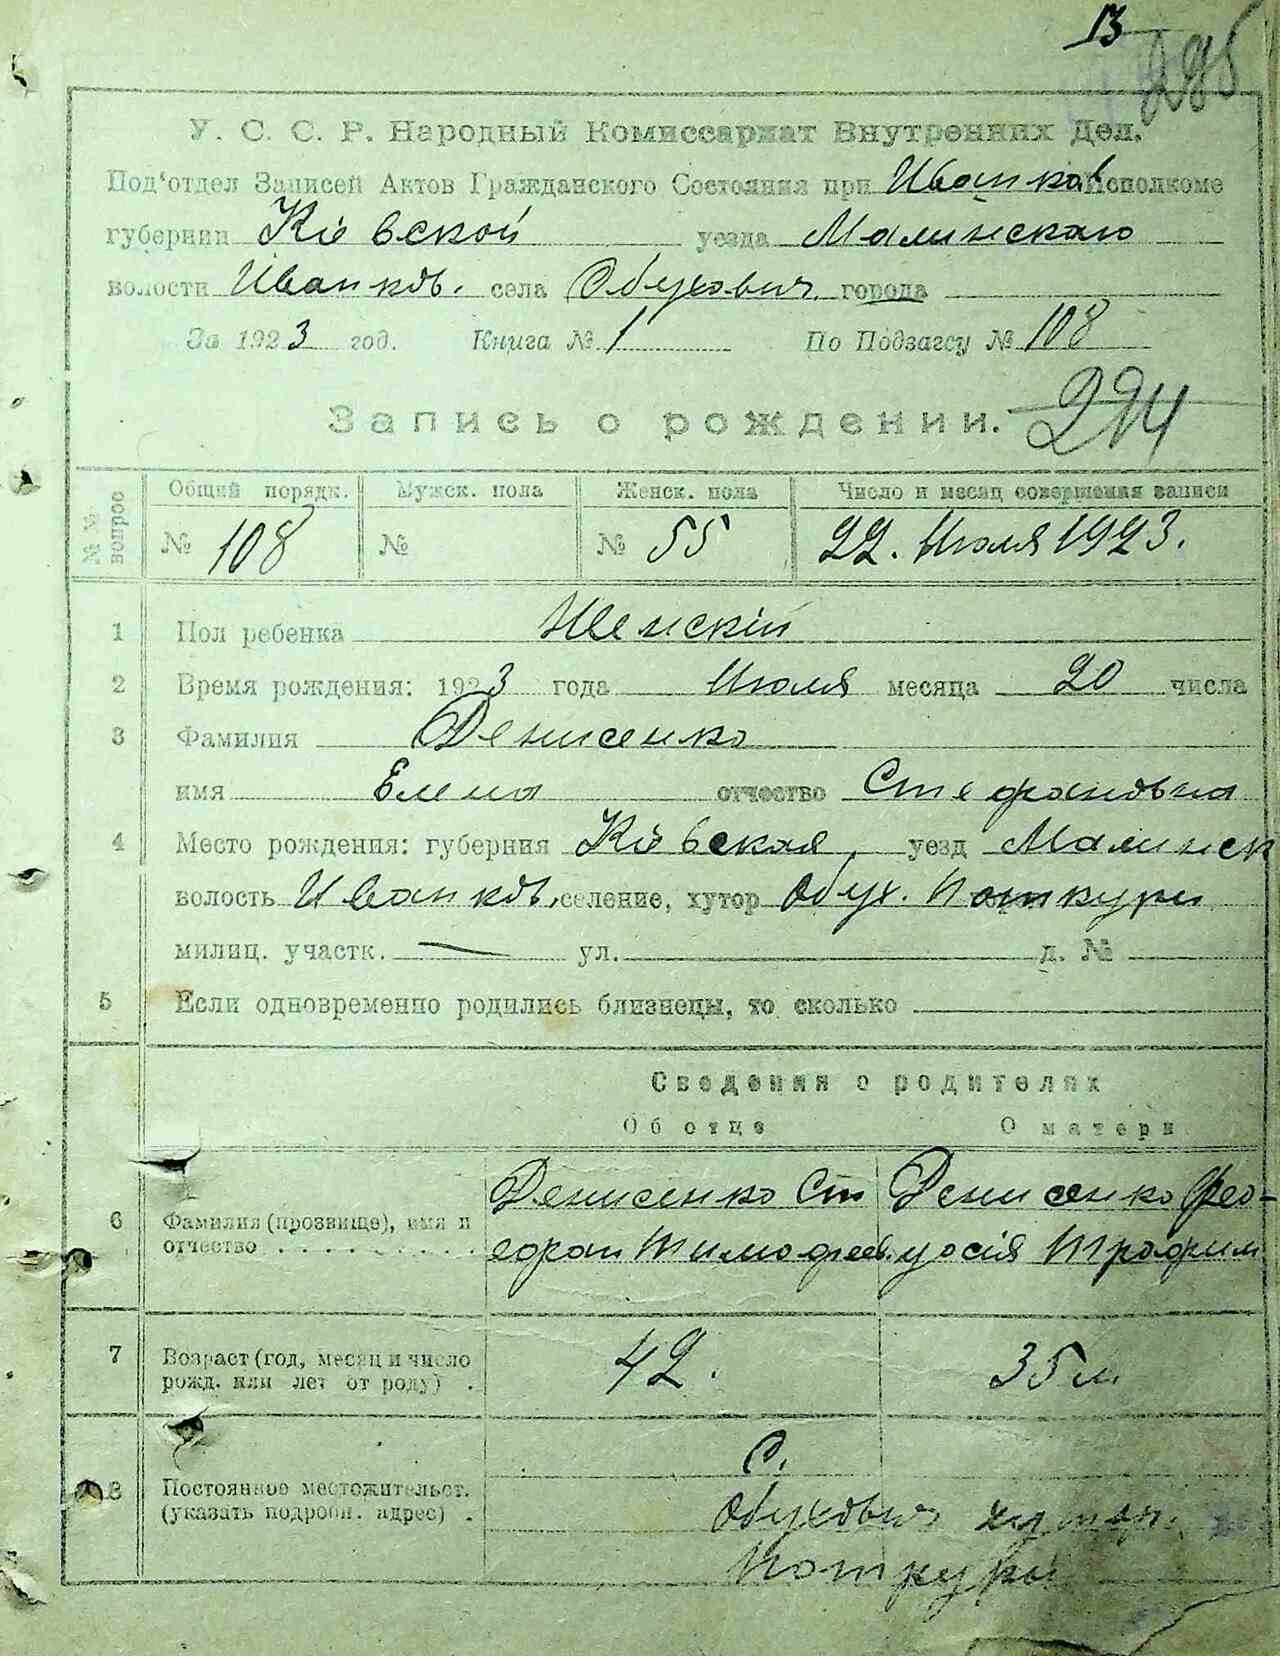 13
295
У. С. С. Р. Народный Комиссариат Внутренних Дел.
Под'отдел Записей Актов Гражданского Состояния при Иванков Исполкоме
губернии Кіевской уезда Малинскаго
волости Иванков. села Обухович города
За 1923 год. Книга № 1 По Подзагсу № 108
Запись о рождении. 294
№№ вопрос Общий порядк. Мужск. пола Женск. пола Число и месяц совершения записи
№ 108 № № 55 22. Июля 1923.
1 Пол ребенка Женскій
2 Время рождения: 1923 года Июля месяца 20 числа
3 Фамилия Денисенко
имя Елена отчество Стефановна
4 Место рождения: губерния Кіевская, уезд Малинск
волость Иванков. селение, хутор Обух. Поткуры
милиц. участк. — ул. д. №
5 Если одновременно родились близнецы, то сколько
Сведения о родителях
Об отце О матери
6 Фамилия (прозвище), имя и отчество
Денисенко Сте Денисенко Фео-
фан Тимофеев. досія Трофим
7 Возраст (год, месяц и число рожд. или лет от роду) . 42. 35 л.
8 Постоянное местожительст. (указать подробн. адрес) .
С.
Обухович хутор.
Поткуры